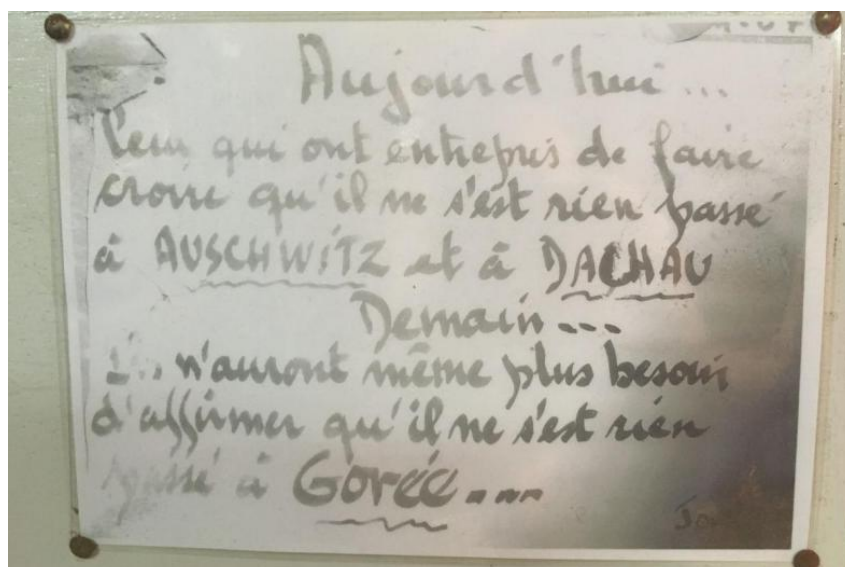 Aujourd'hui...
Ceux qui ont entrepris de faire
croire qu'il ne s'est rien passé
à AUSCHWITZ et à DACHAU
Demain...
n'auront même plus besoin
d'affirmer qu'il ne s'est rien
passé à Gorée...